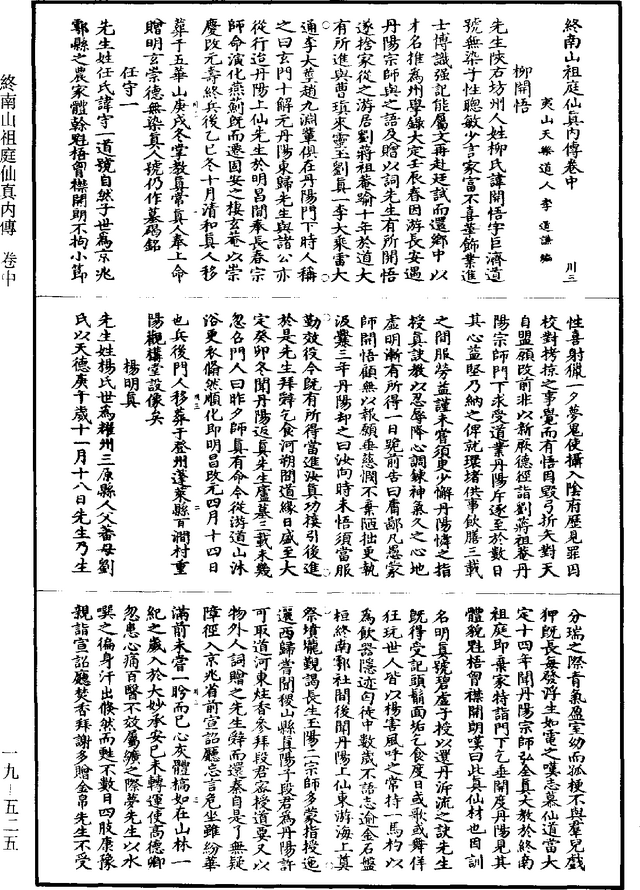 終南山祖庭仙真內傳 卷中
一九—五二五
終南山祖庭仙真內傳卷中 川三
夷山天樂道人李道謙編
柳開悟
先生陜右坊州人姓柳氏諱開悟字巨濟道
號無染子性聰敏少言家富不喜華飾業進
士博識强記能屬文再赴廷試而還鄉中以
才名推為州學錄大定壬辰春因游長安遇
丹陽宗師與之語及贈以詞先生有所開悟
遂捨家從之游居劉蔣祖菴踰十年於道大
有所進與曹瑱來靈玉劉真一李大乘雷大
通李大莘趙九淵輩俱在丹陽門下時人稱
之曰玄門十解元丹陽東歸先生與諸公亦
從行迨丹陽上仙先生於明昌間奉長春宗
師命演化燕薊既而還固安之棲玄菴以崇
慶改元壽終兵後乙巳冬十月清和真人移
葬于五華山庚戌冬掌教真常真人奉上命
贈明玄崇德無染真人號仍作墓碣銘
任守一
先生姓任氏諱守一道號自然子世為京兆
鄠縣之農家體幹魁梧曾襟開朗不拘小節
性喜射獵一夕夢鬼使攝入陰府歷見罪囚
校對拷掠之事覺而有悟因毀弓折矢對天
自盟願改前非以新厥德徑詣劉蔣祖菴丹
陽宗師門下求受道業丹陽斥逐至於數日
其心益堅乃納之俾就環堵供事飲膳三載
之間服勞益謹未嘗須更少懈丹陽憐之指
授真訣教以忍辱降心調鍊神氣久之心地
虛明漸有所得一日跪前告曰屠鄙凡愚蒙
師開悟顧無以報願垂慈憫不棄陋拙更執
汲爨三年丹陽却之曰汝向時未悟須當服
勤效役今既有所得當進汝真功接引後進
於是先生拜辭乞食河朔間道緣日盛至大
定癸卯冬聞丹陽返真先生廬墓三載未幾
忽召門人曰昨夕師真有命令從游道山沐
浴更衣翛然順化即明昌改元四月十四日
也兵後門人移葬于登州蓬萊縣百澗村重
陽觀構堂設像矣
楊明真
先生姓楊氏世為耀州三原縣人父蕃母劉
氏以天德庚午歲十一月十八日先生乃生
分瑞之際青氣盈室幼而孤梗不與羣兒戲
狎既長每發浮生如電之嘆志慕仙道當大
定十四年聞丹陽宗師弘全真大教於終南
祖庭即棄家特詣門下乞垂開度丹陽見其
體貌魁梧曾襟開朗嘆曰此真仙材也因訓
名明真號碧虛子授以還丹泝流之訣先生
既得受記頭鬅面垢乞食度日或歌或舞佯
狂玩世人皆以楊害風呼之常持一馬杓以
為飲器隱迹臼伕中數歲不語志逾金石盤
桓終南鄠社間後聞丹陽上仙東游海上奠
祭墳壠覲謁長生玉陽二宗師多蒙指授迤
邐西歸嘗聞稷山縣真陽子段君為丹陽許
可取道河東炷香參拜段君宻授道要又以
物外人詞贈之先生辭而還秦自是了無疑
障徑入京兆省前宣詔廳忘言危坐雖紛華
滿前未當一盻而已心灰體槁如在山林一
紀之歲入於大妙承安己未轉運使高德卿
忽患心痛百醫不效屬纊之際夢先生以水
噀之徧身汗出倏然而甦不數日四肢康豫
親詣宣詔廳焚香拜謝多贈金帛先生不受